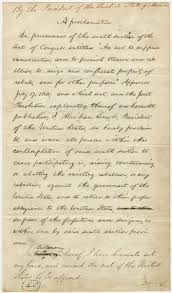 By the President of the United States of America
A proclamation
In pursuance of the sixth section of the
Act of Congress entitled "An act to suppress
insurrection, and to punish treason and rebellion, to seize and confiscate property of rebels, and for other purposes" Approved
July 17, 1862, and which act, and the joint
Resolution explanatory thereof, are herewith
published, I Abraham Lincoln, President
of the United States, do hereby proclaim
to, and warn all persons within the
contemplation of said sixth section to
cease participating in, aiding, countenancing,
or abetting the existing rebellion, or any
rebellion, against the government of the
United States, and to return to their proper
allegiance to the United States,
of the forfeitures and seizures, as
within and by said sixth section provided
In testimony whereof, I have hereunto set
my hand, and caused the seal of the United
States to be affixed